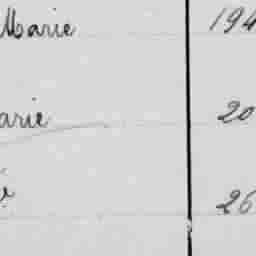 Marie 194
arie 20
é 26